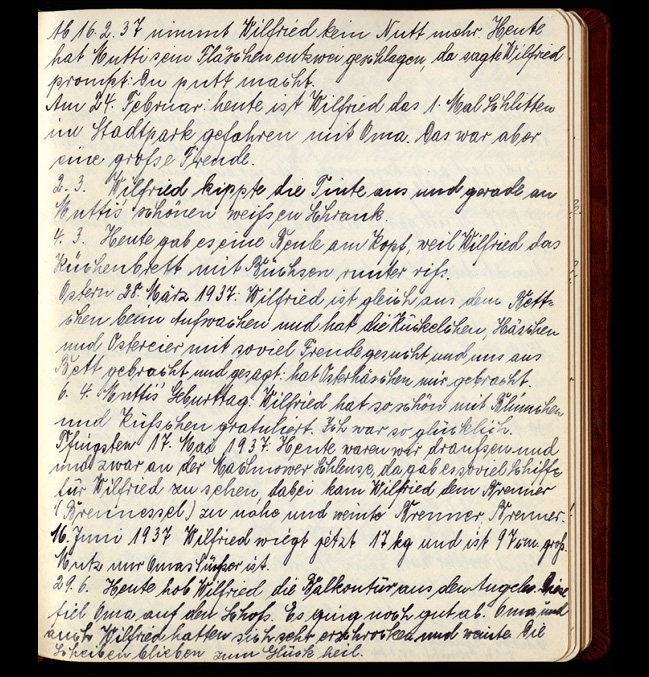 Ab 16.2.37 nimmt Wilfried kein Nutt mehr. Heute
hat Mutti sein Fläschen entzwei geschlagen, da sagte Wilfried
prompt: Du putt macht.
Am 24. Februar: heute ist Wilfried das 1. Mal Schlitten
im Stadtpark gefahren mit Oma. Das war aber
eine große Freude.
2. 3. Wilfried kippte die Tinte aus und gerade an
Mutti's schönen weißen Schrank.
4. 3. Heute gab es eine Beule am Kopf, weil Wilfried das
Küchenbrett mit Büchsen runter riß.
Ostern 28. März 1937. Wilfried ist gleich aus dem Bett-
chen beim Aufwachen und hat die Kückelchen, Häschen
und Ostereier mit soviel Freude gesucht und uns aus
Bett gebracht und gesagt: hat Osterhäschen mir gebracht.
6. 4. Mutti's Geburttag. Wilfried hat so schön mit Blümchen
und Küßchen gratuliert. Ich war so glücklich.
Pfingsten 17. Mai 1937. Heute waren wir draußen und
und zwar an der Machnower Schleuse, da gab es soviel Schiffe
für Wilfried zu sehen, dabei kam Wilfried dem Brenner
(Brennessel) zu nahe und weinte Brenner, Brenner.
16. Juni 1937 Wilfried wiegt jetzt 17 kg und ist 97 cm. groß.
Mutz nur Omas ist.
29. 6. Heute hob Wilfried die Balkontür aus den Angeln. Diese
fiel Oma auf den Schoß. Es ging noch gut ab. Oma und
auch Wilfried hatten sich sehr erschrocken und weinte. Die
Scheiben blieben zum Glück heil.